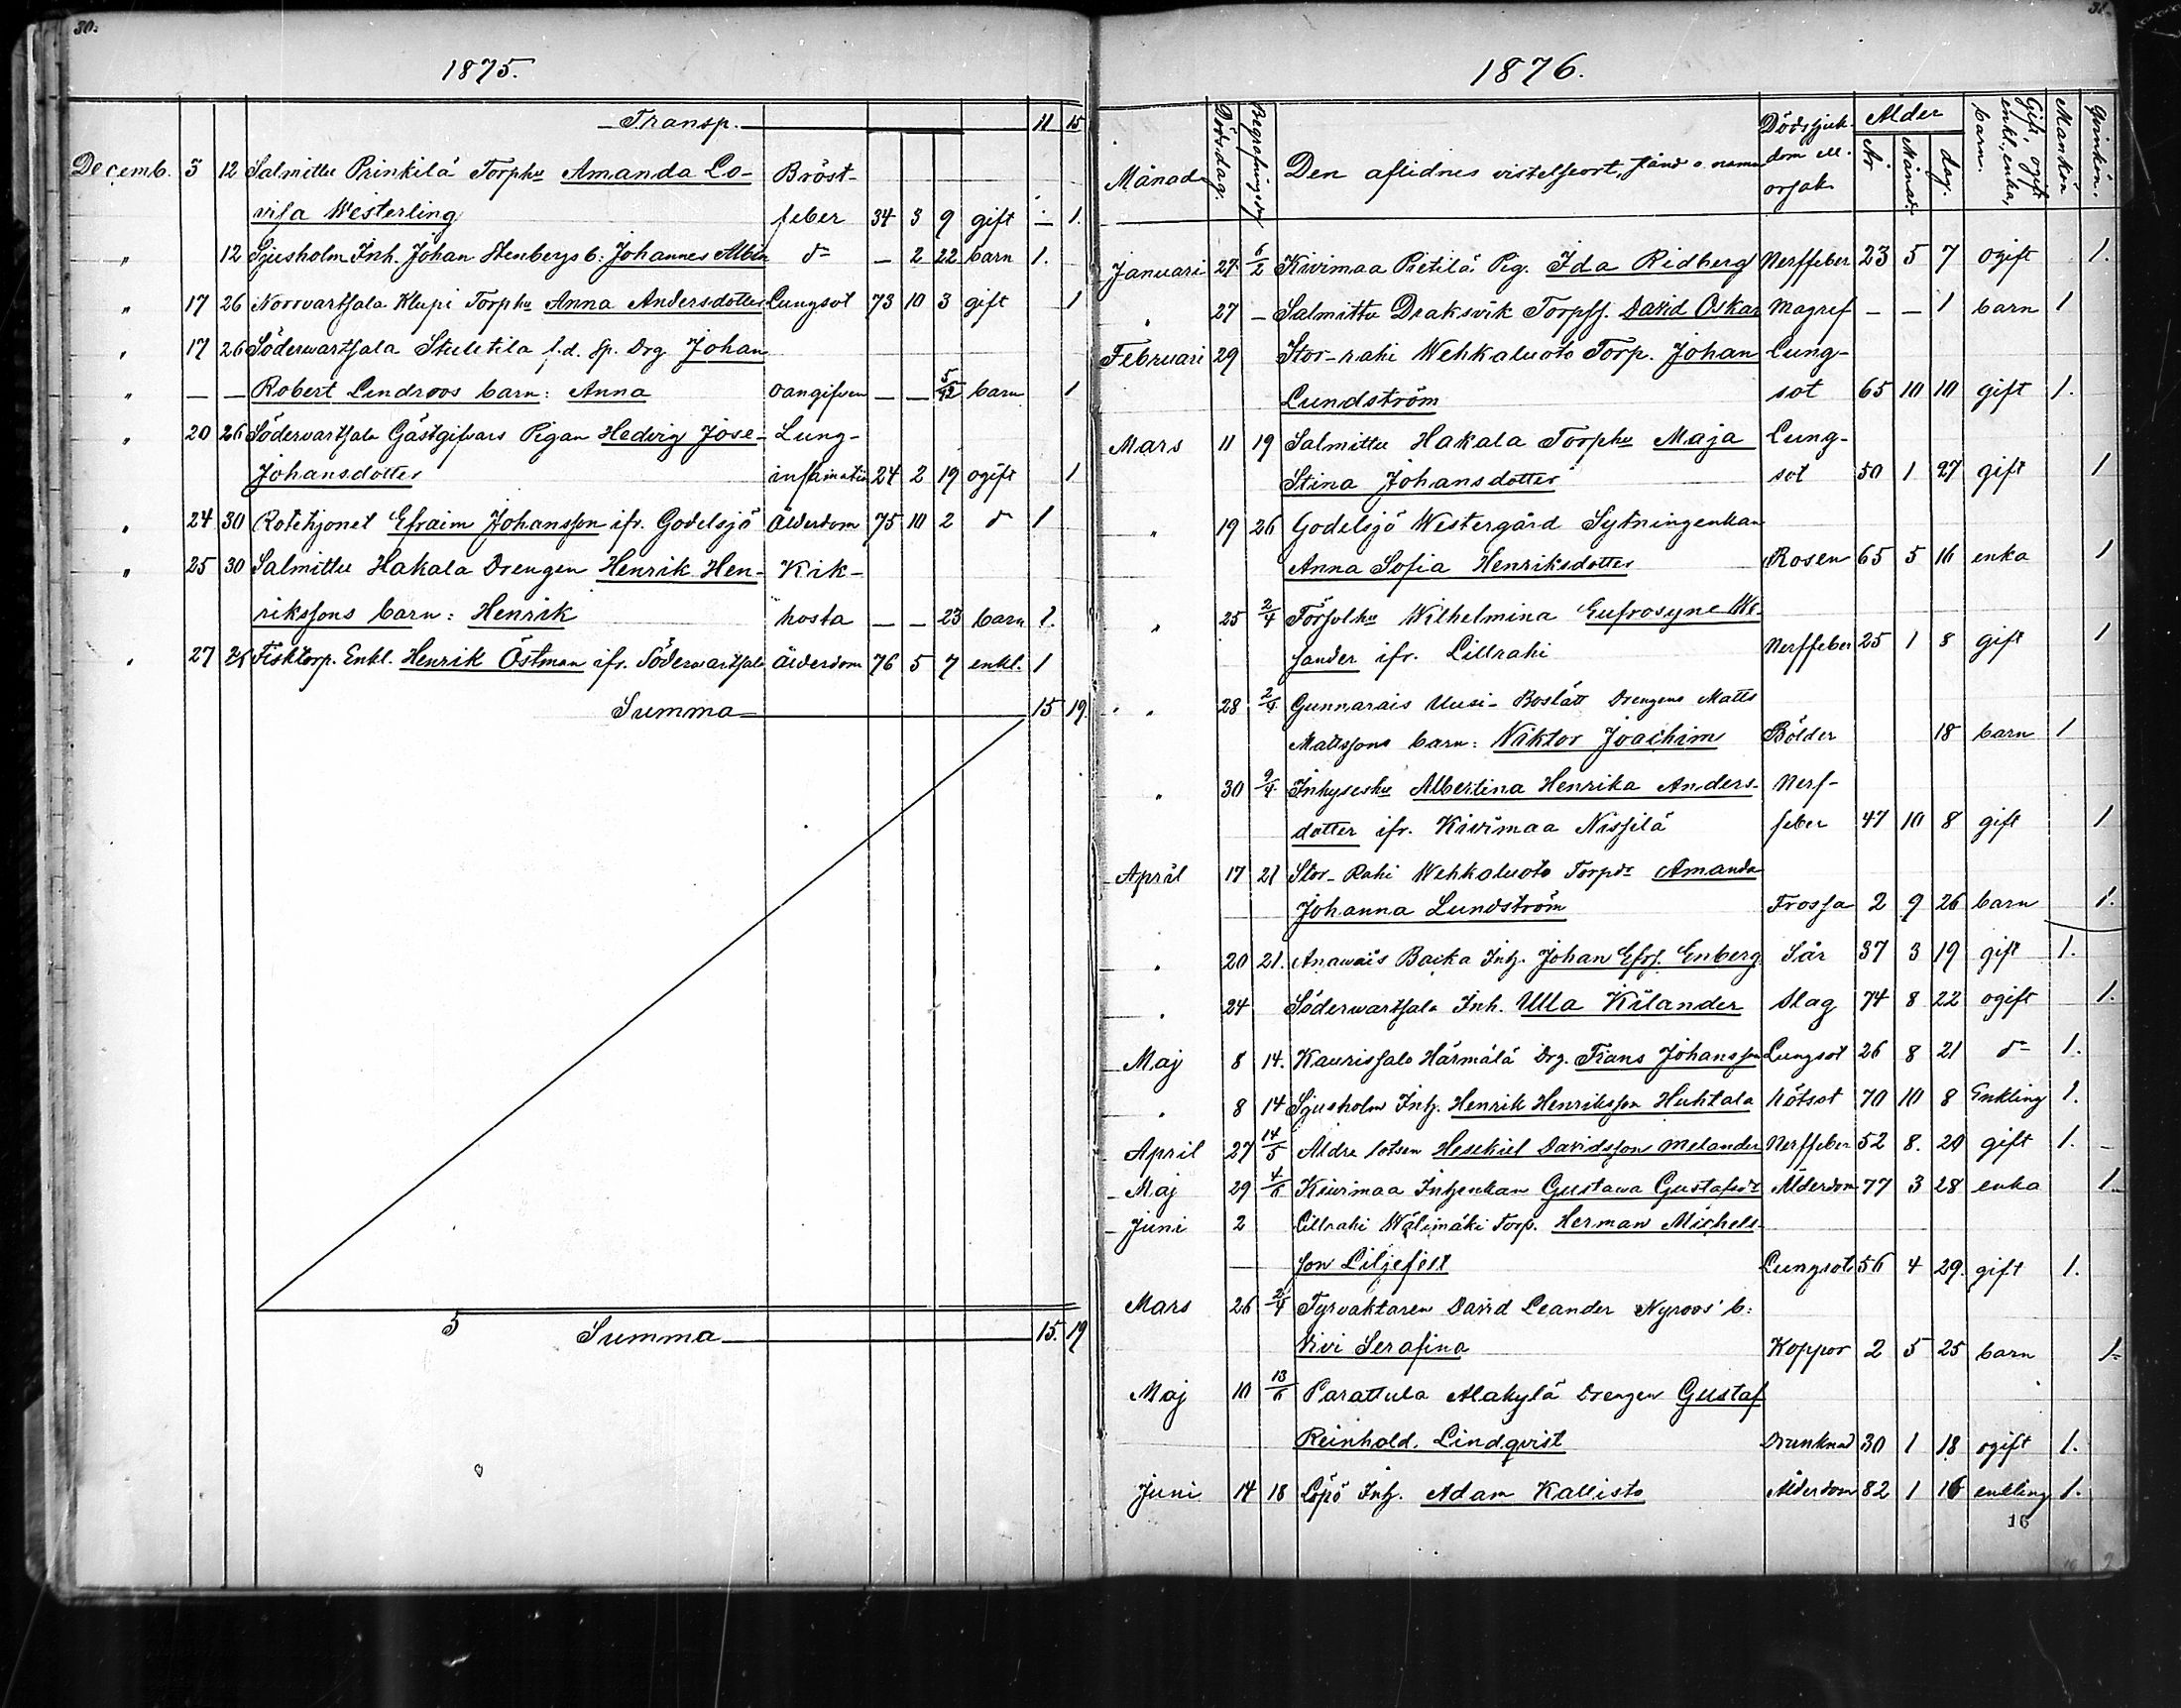 30.
1875.
Transp. 11 15
Decemb. 5 12 Salmittu Prinkilä Torphu Amanda Lo- Bröst-
visa Westerling feber 34 3 9 gift - 1.
" 12 Sjusholm Inh. Johan Stenbergs b: Johannes Albin do - 2 22 barn 1.
" 17 26 Norrvartsala Klupi Torphu Anna Andersdotter Lungsot 73 10 3 gift 1
" 17 26 Söderwartsala Stuletila f.d. Sp. Drg Johan
" — — Robert Lindroos barn: Anna oangifven — — 5/12 barn 1
" 20 26 Södervartsala Gästgifvars Pigan Hedvig Jose- Lung-
Johansdotter inflamation 24 2 19 ogift 1
" 24 30 Rotehjonet Efraim Johansson ifr. Godelsjö Ålderdom 75 10 2 do 1
" 25 30 Salmittu Hakala Drengen Henrik Hen- Kik-
rikssons barn: Henrik hosta — — 23 barn 1.
" 27 26 Fisktorp. Enkl. Henrik Östman ifr. Söderwartsala Ålderdom 76 5 7 enkl. 1
Summa 15 19.
5 Summa 15. 19
31.
1876.
Månad Dödsdag. Begrafningsdag Den aflidnes vistelseort, stånd o. namn Dödssjuk-dom ell. orsak Ålder År Månad. dag. Gift, ogift enkl., enka, barn. Mankön Qvinkön.
Januari 27 6/2 Kivimaa Pietilä Pig. Ida Ridberg Nerffeber 23 5 7 ogift 1.
" 27 — Salmittu Draksvik Torpss. David Oskar Magref — — 1 barn 1
Februari 29 Stor-rahi Wehkaluoto Torp. Johan Lung-
Lundström sot 65 10 10 gift 1.
Mars 11 19 Salmittu Hakala Torphu Maja Lung-
Stina Johansdotter sot 50 1 27 gift 1
" 19 26 Godelsjö Westergård Sytningenkan
Anna Sofia Henriksdotter Rosen 65 5 16 enka 1
" 25 2/4 Wilhelmina Eufrosyne We-
lander ifr. Lillrahi Nerffeber 25 1 8 gift 1
" 28 2/4 Gunnarais Uusi-Bostätt Drengens Matts
Mattssons barn: Niktor Joachim Bölder 18 barn 1
" 30 9/4 Inhyseshu Albertina Henrika Anders- Nerf-
dotter ifr. Kivimaa Nissilä feber 47 10 8 gift 1
April 17 21 Stor-Rahi Wehkaluoto Torpdr Amanda
Johanna Lundström Frossa 2 9 26 barn 1.
" 20 21. Anawais Backa Inh. Johan Efrs. Enberg Sår 37 3 19 gift 1.
" 24 Söderwartsala Inh. Ulla Kilander Slag 74 8 22 ogift 1.
Maj 8 14. Kaurissalo Härmälä Drg. Frans Johansson Lungsot 26 8 21 do 1.
" 8 14 Sjusholm Inh. Henrik Henriksson Huhtala Rötsot 70 10 8 Enkling 1.
April 27 14/5 Äldre lotsen Hesekiel Davidsson Melander Nerffeber 52 8. 20 gift 1.
Maj 29 4/6 Kivimaa Inhenkan Gustava Gustafsdr Ålderdom 77 3 28 enka 1
Juni 2 Lillrahi Wälimäki Torp. Herman Michels-
son Liljefelt Lungsot 56 4 29. gift 1.
Mars 26 2/4 Fyrvaktaren David Leander Nyroos' b:
Vivi Serafina Koppor 2 5 25 barn 1.
Maj 10 13/6 Parattula Alakylä Drengen Gustaf
Reinhold. Lindqvist Drunknad 30 1 18 ogift 1.
Juni 14 18 Löpö Inh. Adam Kallisto Ålderdom 82 1 16 enkling 1.
16
10 9